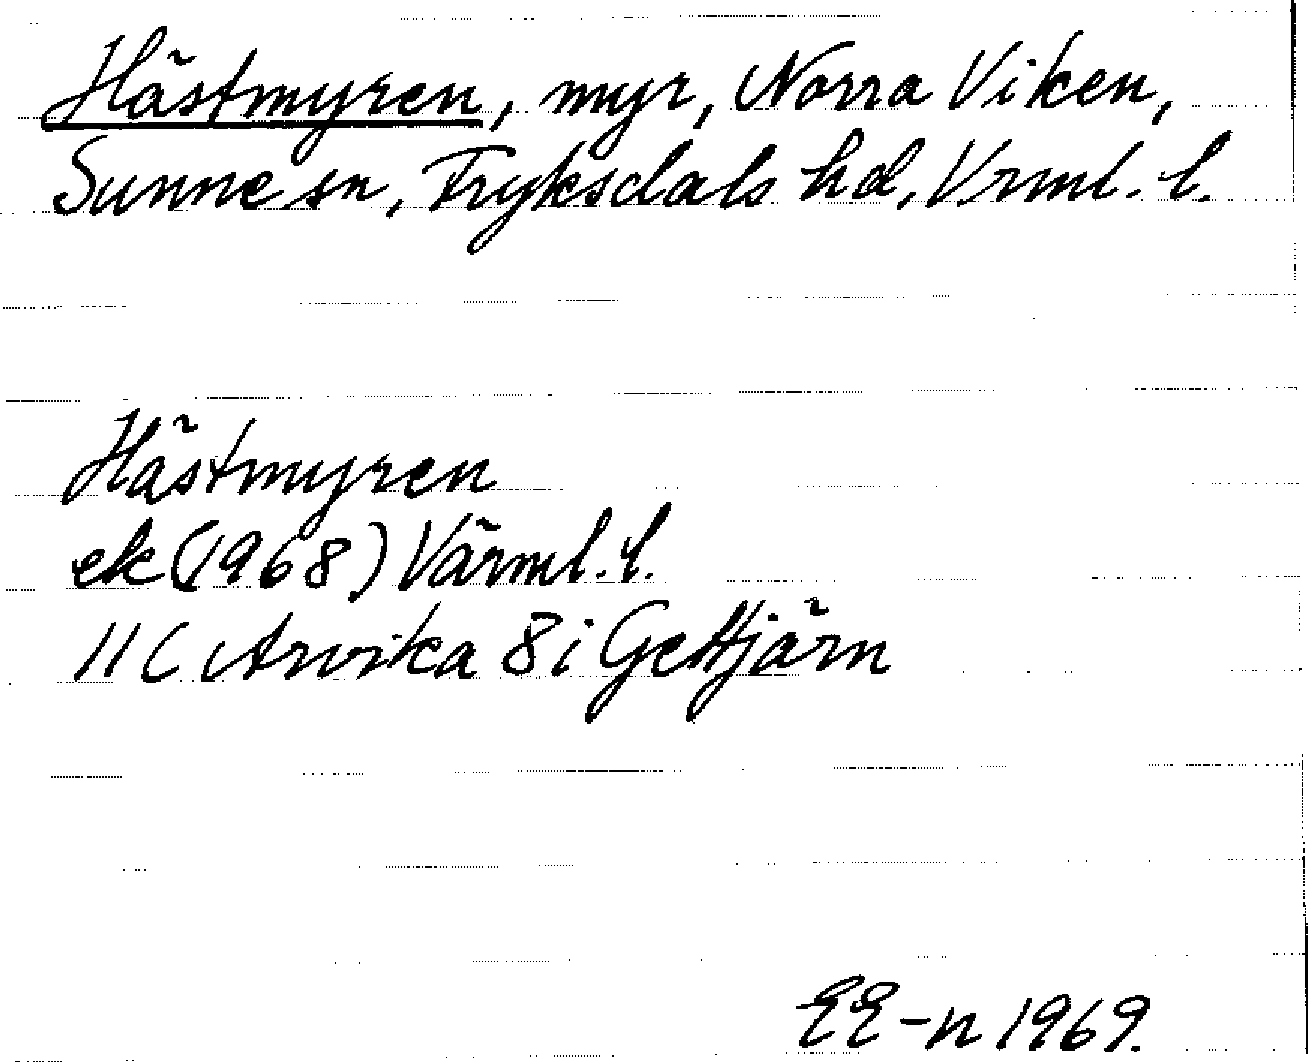 Hästmyren, myr, Norra Viken,
Sunne sn, Fryksdals hd, Vrml. l.
Hästmyren
ek (1968) Värml. l.
11 C Arvika 8 i Gettjärn
EE-n 1969.